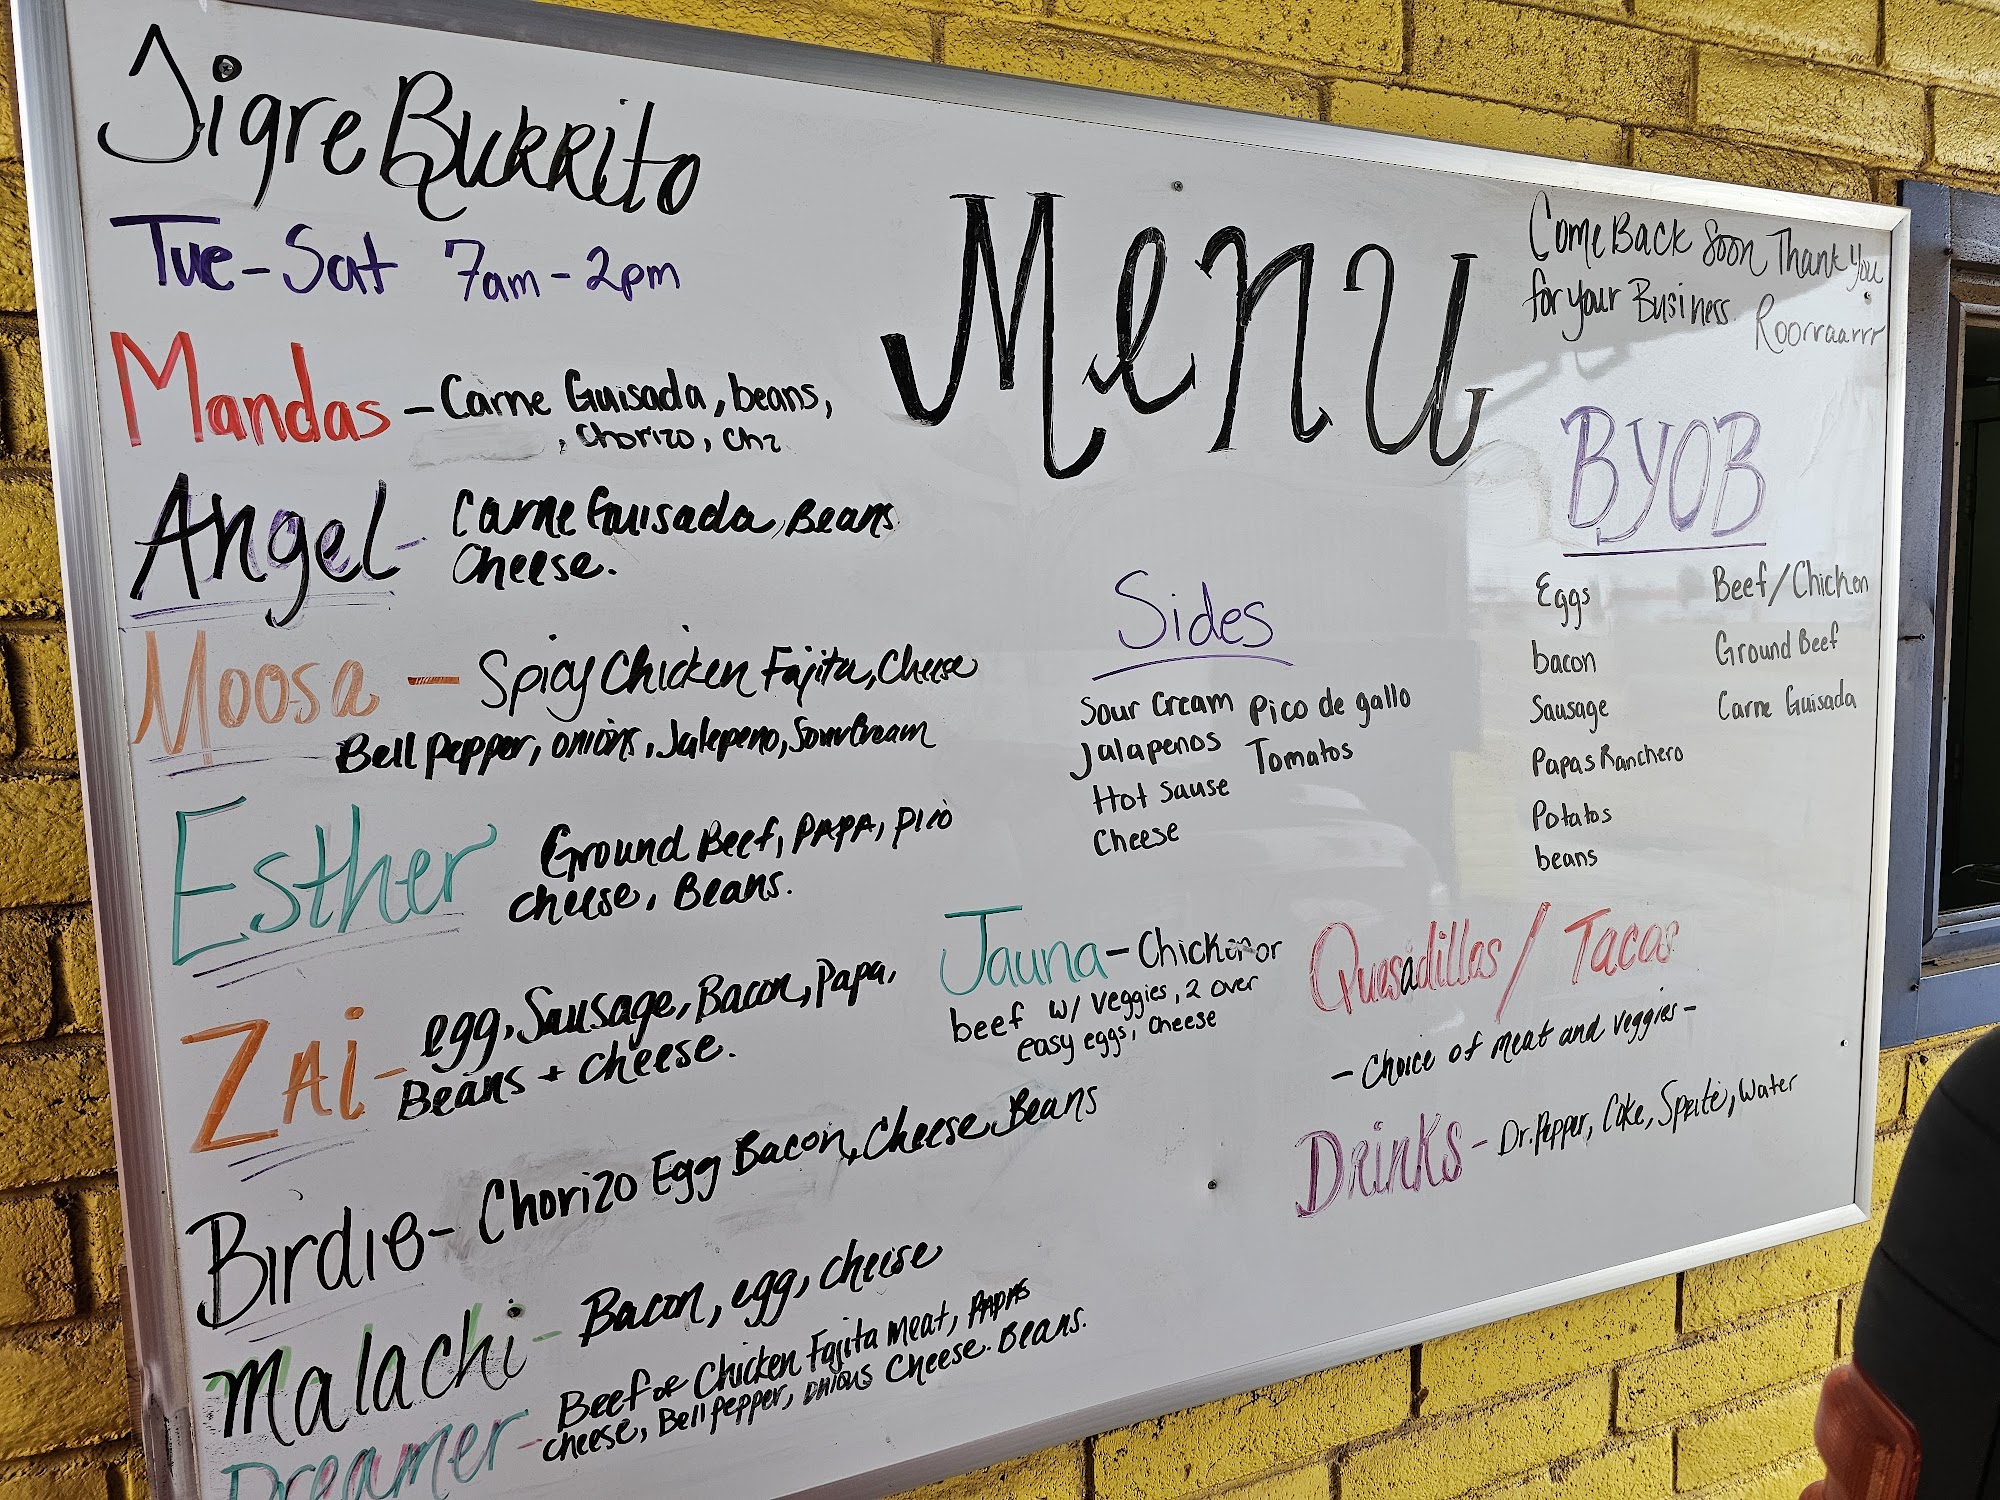 Tigre Burrito
Tue-Sat 7am-2pm
Mandas - Carne Guisada, beans,
, Chorizo, Chz
Angel- Carne Guisada, Beans
Cheese.
Moosa - Spicy Chicken Fajita, Cheese
Bell Pepper, onions, Jalepeno, Sour Cream
Esther Ground Beef, PAPA, Pico
cheese, Beans.
Zai- egg, Sausage, Bacon, Papa,
Beans + cheese.
Birdie- Chorizo Egg Bacon, Cheese, Beans
Malachi- Bacon, egg, cheese
Dreamer- Beef or Chicken Fajita meat, PAPAS
cheese, Bell pepper, onions Cheese. Beans.
Menu
Come Back Soon Thank You
for your Business
Roorraarrr
Sides
Sour Cream Pico de gallo
Jalapenos Tomatos
Hot Sause
Cheese
BYOB
Eggs Beef/Chicken
bacon Ground Beef
Sausage Carne Guisada
Papas Ranchero
Potatos
beans
Jauna- Chicken or
beef w/ veggies, 2 over
easy eggs, cheese
Quesadillas / Tacos
- Choice of meat and veggies -
Drinks- Dr. Pepper, Coke, Sprite, Water